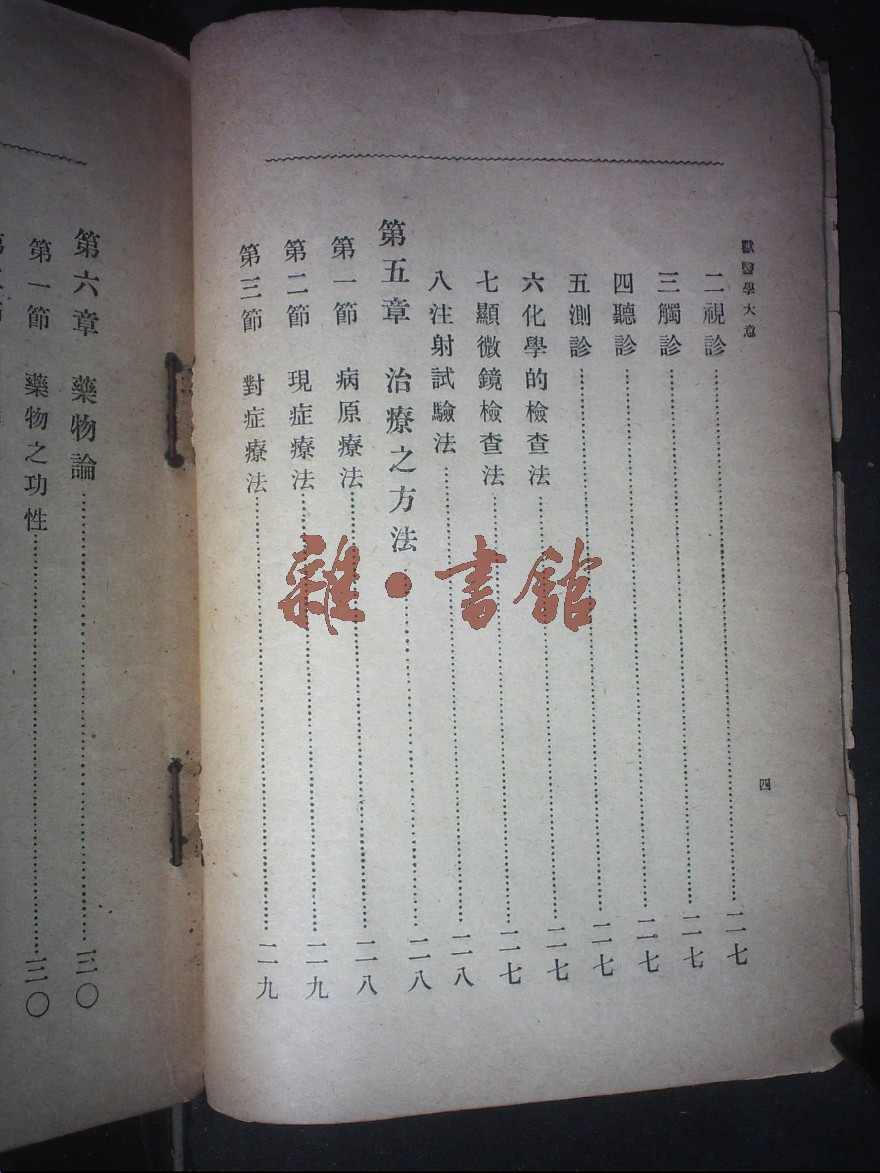 獸醫學大意
四
二視診……二七
三觸診……二七
四聽診……二七
五測診……二七
六化學的檢查法……二七
七顯微鏡檢查法……二七
八注射試驗法……二八
第五章 治療之方法……二八
第一節 病原療法……二八
第二節 現症療法……二九
第三節 對症療法……二九
第六章 藥物論……三〇
第一節 藥物之功性……三〇
雜·書館